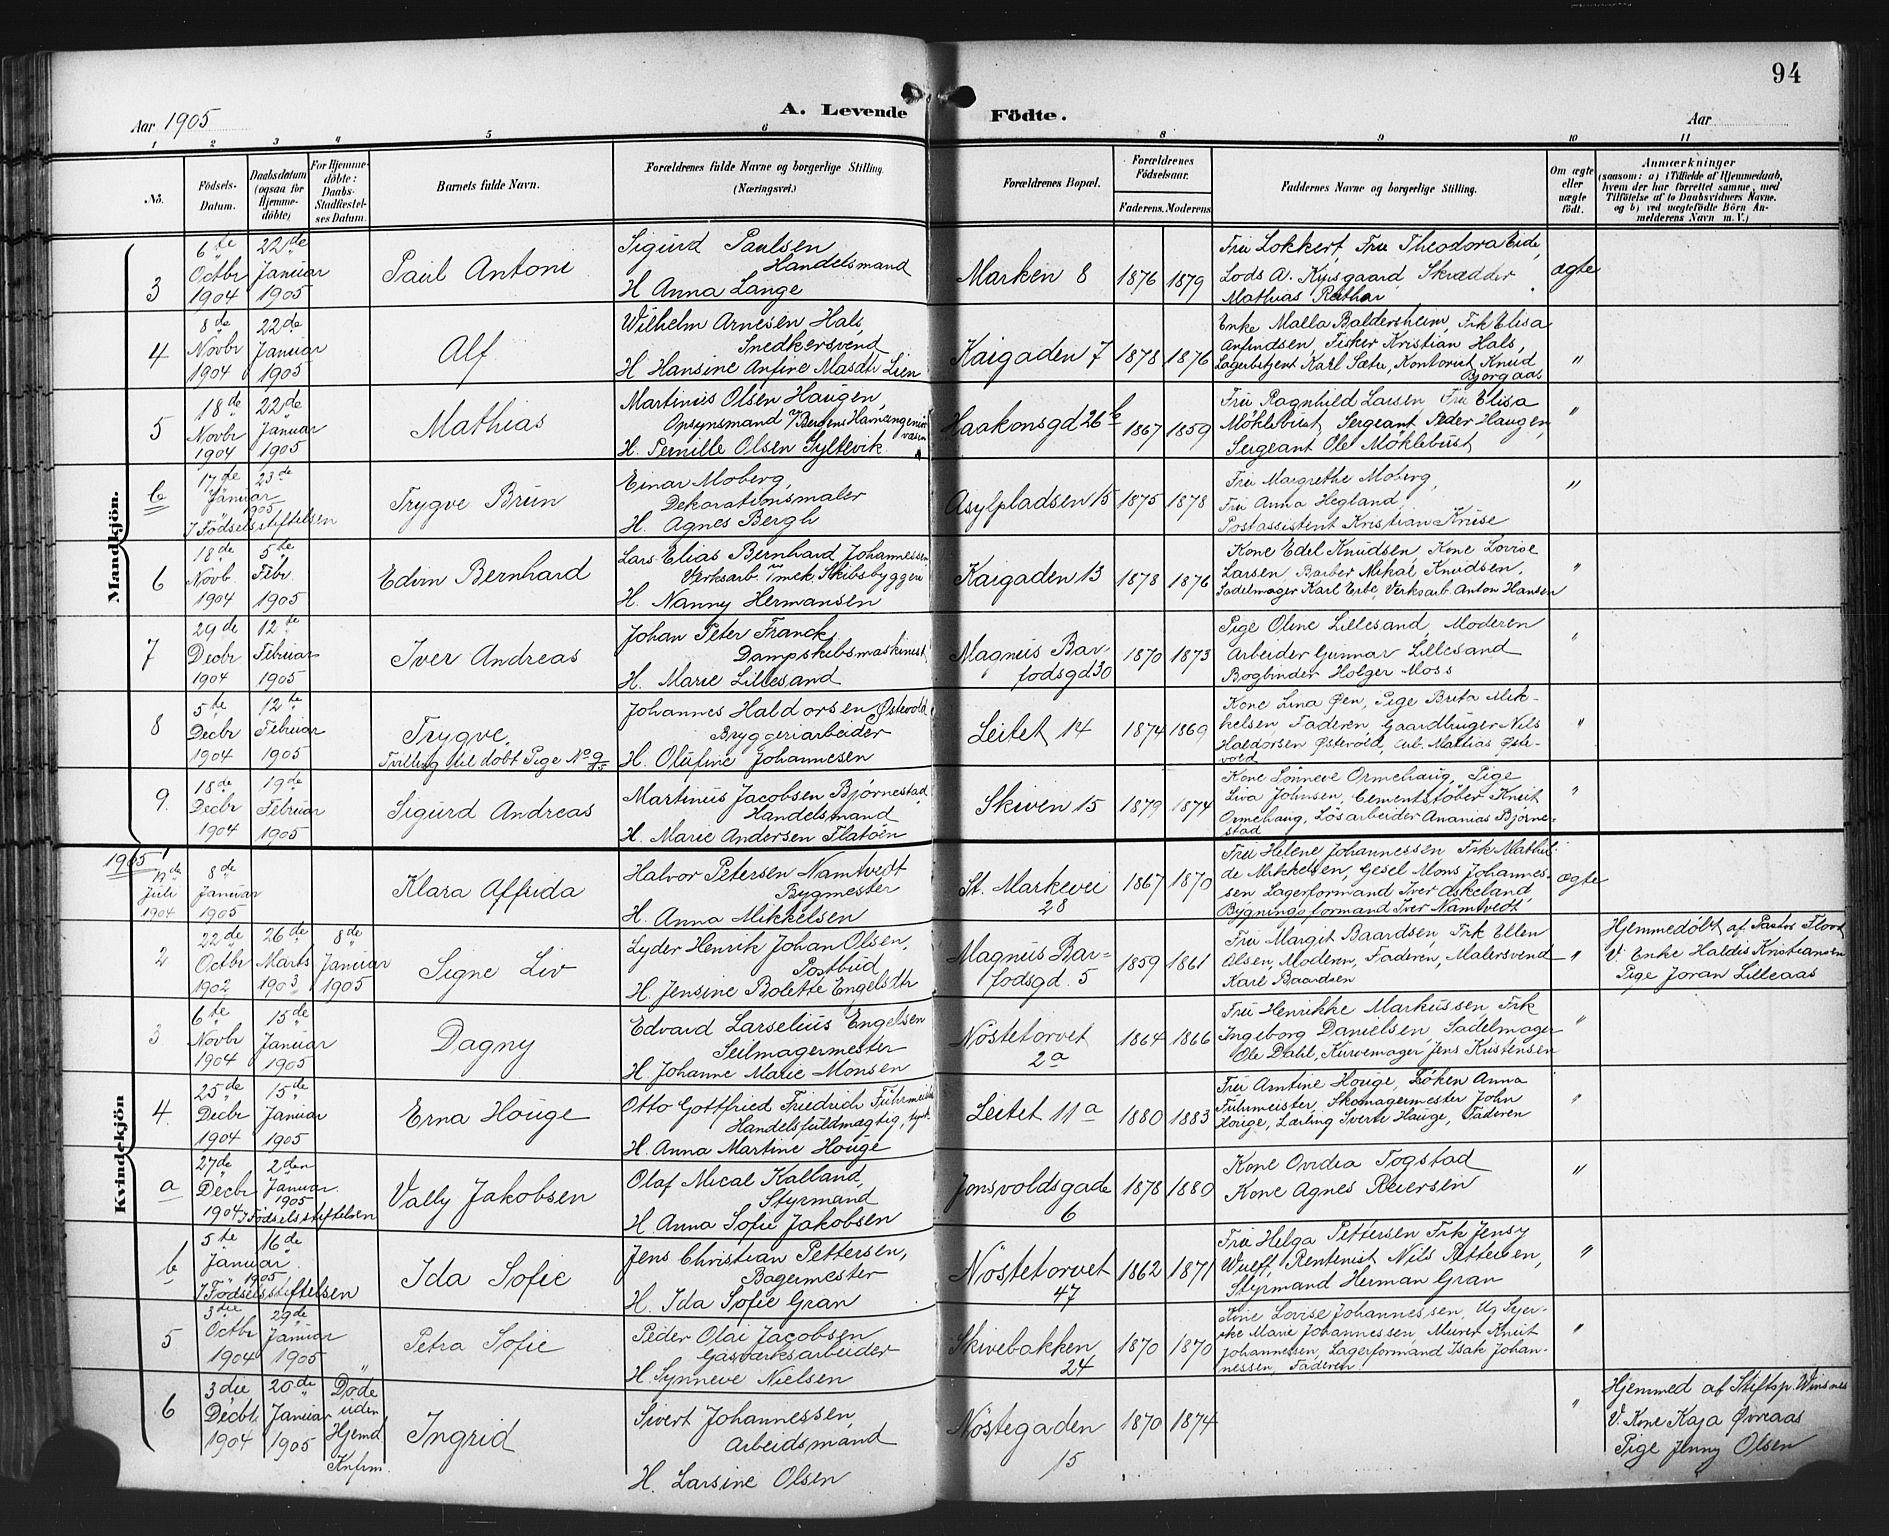 94
Aar 1905
A. Levende Födte.
Aar
1 2 3 4 5 6 8 9 10 11
Nö.
Födsels-Datum.
Daabsdatum (ogsaa for Hjemme-döbte)
For Hjemme-döbte: Daabs-Stadfæstel-ses Datum.
Barnets fulde Navn.
Forældrenes fulde Navne og borgerlige Stilling. (Næringsvei.)
Forældrenes Bopæl.
Forældrenes Födselsaar.
Faderens. Moderens.
Faddernes Navne og borgerlige Stilling.
Om ægte eller uægte födt.
Anmærkninger
(saasom: a) i Tilfælde af Hjemmedaab,
hvem der har forrettet samme, med
Tilföielse af to Daabsvidners Navne.
og b) ved uægtefödte Börn An-
melderens Navn m. V.)
Mandkjön.
3
6te Octbr 1904
22de Januar 1905
Paul Antoni
Sigurd Paulsen
Handelsmand
H Anna Lange
Marken 8
1876 1879
Fru Lokkert, Fru Theodora Eide,
Lods A. Kursgaard Skrædder
Mathias
ægte
4
8de Novbr 1904
22de Januar 1905
Alf
Wilhelm Arnesen Hals,
Snedkersvend
H Hansine Anfine Masdtr Lien
Kaigaden 7
1878 1876
Enke Malla Baldersheim, Frk Elisa
Arfindsen, Fisker Kristian Hals,
Lagerbetjent Karl Sæter, Kontorist Knud
Bjorgaas
"
5
18de Novbr 1904
22de Januar 1905
Mathias
Martinus Olsen Haugen,
Opsynsmand v/ Bergens Havneingeniör
væsen
H. Pernille Olsen Syltevik
Haakonsgd 26 b
1867 1859
Fru Ragnhild Larsen Fru Elisa
Möklebust, Sergeant Peder Haugen,
Sergeant Ole Möklebust
"
b
17de Januar 1905
23de
I Födselsstiftelsen
Trygve Brun
Einar Moberg,
Dekorationsmaler
H. Agnes Bergh
Asylpladsen 15
1875 1878
Fru Margrethe Moberg,
Fru Anna Hegland,
Postassistent Kristian Knise
"
6
18de Novb 1904
5te Febr. 1905
Edvin Bernhard
Lars Elias Bernhard Johannessen
Verksarb. v/ mek Skibsbyggeri
H. Nanny Hermansen
Kaigaden 13
1878 1876
Kone Edel Knudsen, Kone Lovise
Larsen, Barber Mikal Knudsen,
Sadelmager Karl Erbe, Verksarb. Anton Hansen
"
7
29de Decbr 1904
12te Februar 1905
Iver Andreas
Johan Peter Franck,
Dampskibsmaskinist
H. Marie Lillesand
Magnus Bar-
fodsgd 30
1870 1873
Pige Oline Lillesand, Moderen
Arbeider Gunnar Lillesand
Bogbinder Holger Moss
"
8
5te Decbr 1904
12te Februar 1905
Trygve,
Tvilling til döbt Pige No 9/05
Johannes Haldorsen Østevold
Bryggeriarbeider
H. Olufine Johannesen
Leitet 14
1874 1869
Kone Lina Øen, Pige Brita Mik-
kelsen Faderen, Gaardbruger Nils
Haldorsen Østevold, Arb. Mathias Øste-
vold
"
9.
18de Decbr 1904
19de Februar 1905
Sigurd Andreas
Martinus Jacobsen Bjørnestad
Handelsmand
H. Marie Andersen Flatöen
Skiven 15
1879 1874
Kone Sönneve Ormehaug, Pige
Liva Johnsen, Cementstöber Knut
Ormehaug, Lösarbeider Ananias Bjørne-
stad
"
Kvindekjön
1905
1
Juli 1904
8de Januar 1905
Klara Alfrida
Halvor Petersen Namtvedt
Bygmester
H. Anna Mikkelsen
St. Markevei
28
1867 1870
Fru Helene Johannessen Frk Mathil-
de Mikkelsen, Gesel Mons Johannes-
sen Lagerformand Iver Askeland
Bygningsformand Iver Namtvedt
ægte
2
22de Octbr 1902
26de Marts 1903
8de Januar 1905
Signe Liv
Lyder Henrik Johan Olsen,
Postbud
H. Jensine Bolette Engelsdtr
Magnus Bar-
fodsgd. 5
1859 1861
Fru Margit Baardsen, Frk Ellen
Olsen, Moderen, Faderen, Malersvend
Karl Baardsen
"
Hjemmedöbt af Pastor Flood
V. Enke Haldis Kristiansen
Pige Joran Lilleaas
3
6te Novbr 1904
15de Januar 1905
Dagny
Edvard Larselius Engelsen
Seilmagermester
H Johanne Marie Monsen
Nöstetorvet
2a
1864 1866
Fru Henrikke Markussen, Frk
Ingeborg Danielsen, Sadelmager
Ole Dahl, Kurvemager Jens Kristensen
"
4.
25de Decbr 1904
15de Januar 1905
Erna Houge
Otto Gottfried Friedrich Fuhrmeister
Handelsfuldmægtig, tysk
H. Anna Martine Houge
Leitet 11a
1880 1883
Fru Amtine Houge, Föken Anna
Fuhrmeister, Skomagermester John
Houge, Lærling Sverre Hauge, Faderen
"
a
27de Decbr 1904
2den Januar. 1905
I Födselsstiftelsen
Vally Jakobsen
Olaf Mical Kalland,
Styrmand
H Anna Sofie Jakobsen
Jonsvoldsgade
6
1878 1880
Kone Ovidia Togstad
Kone Agnes Reiersen
"
b
5te Januar. 1905
16de
I Födselsstiftelsen
Ida Sofie
Jens Christian Pettersen,
Bagermester
H. Ida Sofie Gran
Nöstetorvet
47
1862 1871
Fru Helga Pettersen Frk Jensy
Wulff, Rentenist Nils Pettersen,
Styrmand Herman Gran
"
5
3die Octbr 1904
29de Januar 1905
Petra Sofie
Peder Olai Jacobsen
Gasværksarbeider
H. Synneve Nielsen
Skivebakken
24
1870 1870
Kone Lovise Johannessen, Ug Syer-
ske Marie Johannessen, Murer Knut
Johannessen, Lagerformand Isak Johan-
nessen, Faderen.
"
6
3die Decbr. 1904
20de Januar 1905
Døde uden Hjemd. Knfrm.
Ingrid
Sivert Johannessen,
Arbeidsmand
H. Larsine Olsen
Nöstegaden
15
1870 1874
"
Hjemmed af Stiftsp. Winsnes
V. Kone Kaja Øvreaas
Pige Jenny Olsen